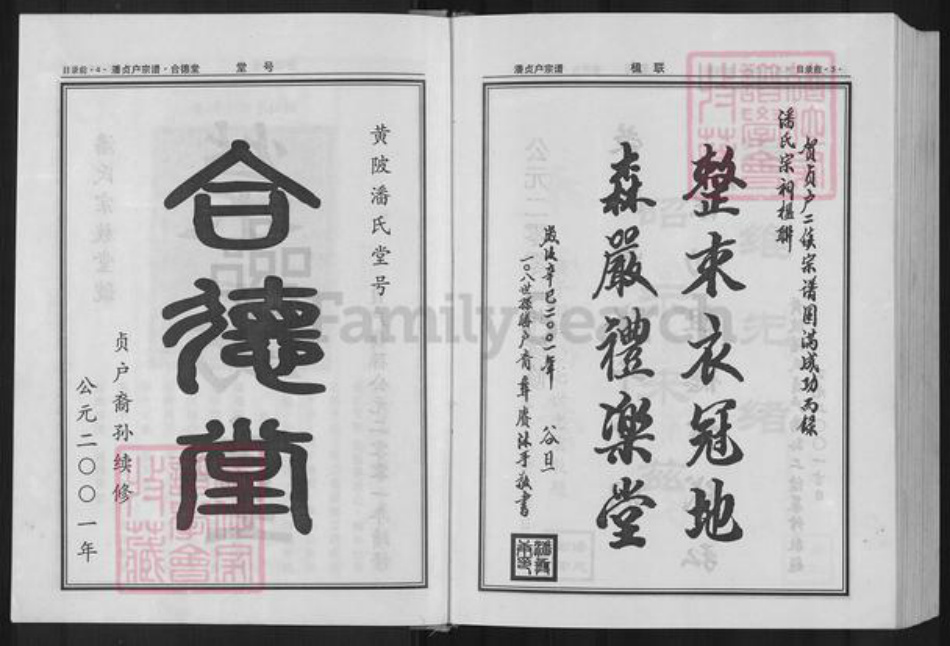 目录前·4·潘贞户宗谱·合德堂 堂号
黄陂潘氏堂号
合德堂
贞户裔孙续修
公元二〇〇一年
潘贞户宗谱 楹联 目录前·5·
贺贞户二续宗谱圆满成功而录
潘氏宗祠楹联
整束衣冠地
森嚴禮樂堂
歲次辛巳二〇〇一年 谷旦
FamilySearch